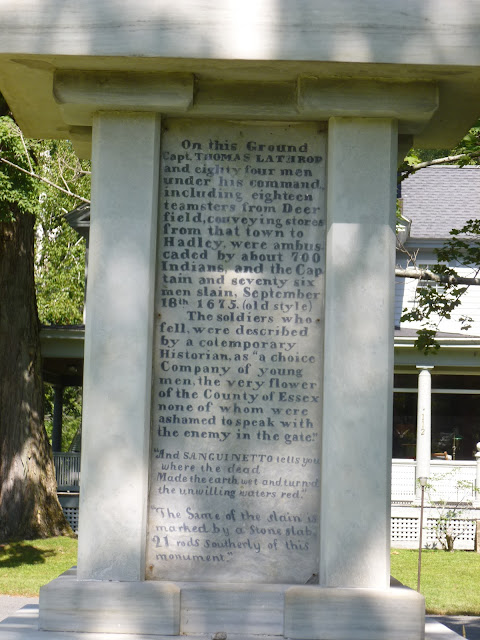 On this Ground
Capt. THOMAS LATHROP
and eighty four men
under his command,
including eighteen
teamsters from Deer
field, conveying stores
from that town to
Hadley, were ambus
caded by about 700
Indians, and the Cap
tain and seventy six
men slain, September
18th 1675. (old style)
The soldiers who
fell, were described
by a cotemporary
Historian, as "a choice
Company of young
men, the very flower
of the County of Essex
none of whom were
ashamed to speak with
the enemy in the gate."
"And SANGUINETTO tells you
where the dead
Made the earth wet and turn'd
the unwilling waters red."
"The Same of the slain is
marked by a Stone slab,
21 rods southerly of this
monument."
112